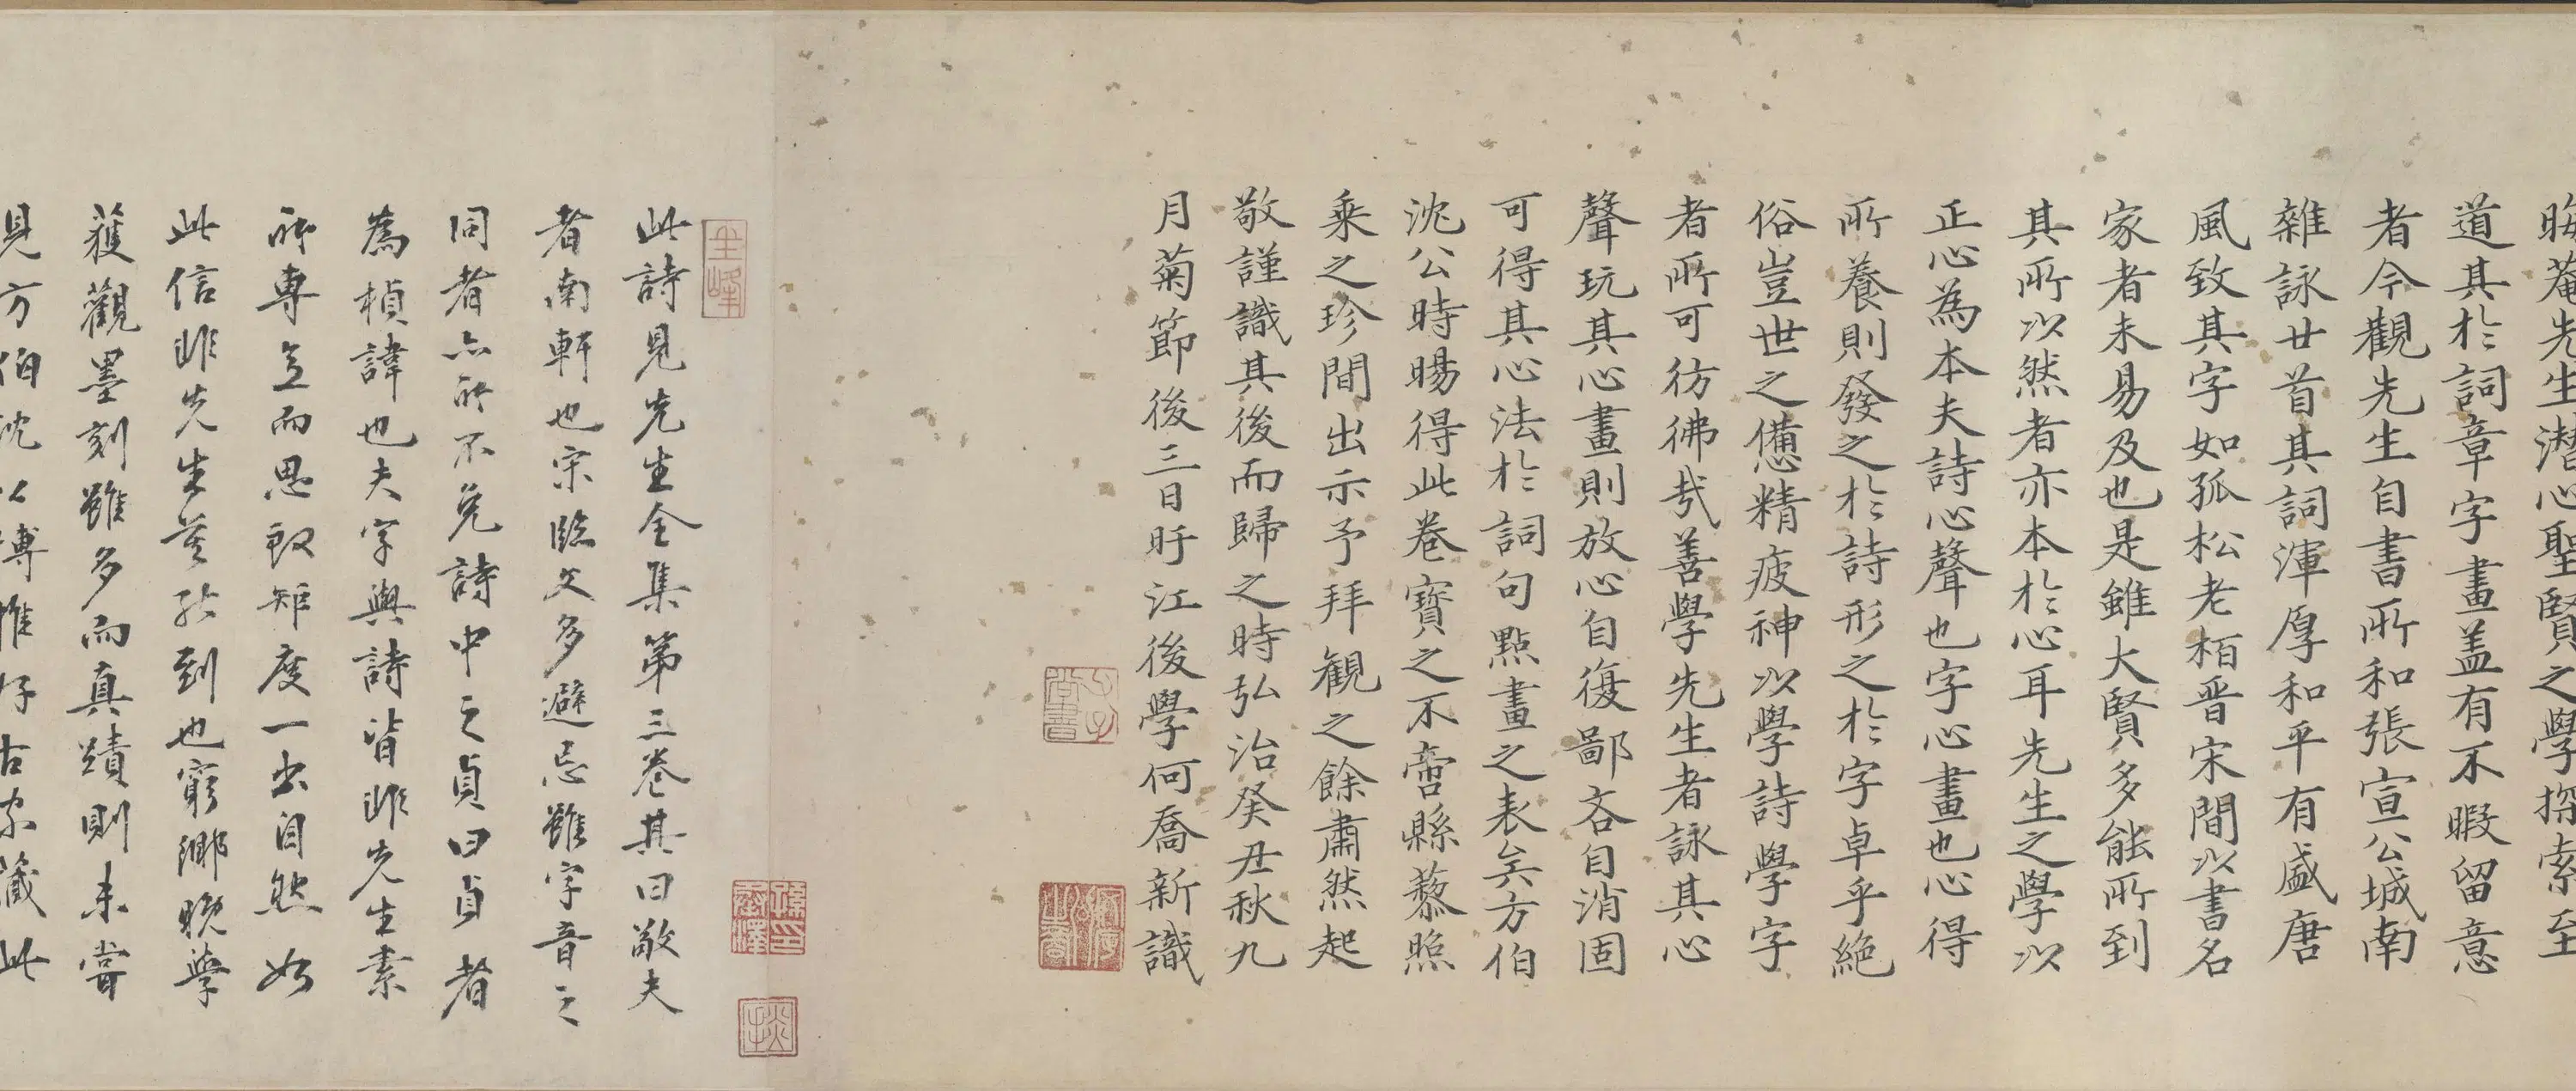 晦菴先生潛心聖賢之學探索至
道其於詞章字畫盖有不暇留意
者今觀先生自書所和張宣公城南
雜詠廿首其詞渾厚和平有盛唐
風致其字如孤松老栢晋宋間以書名
家者未易及也是雖大賢多能所到
其所以然者亦本於心耳先生之學以
正心為本夫詩心聲也字心畫也心得
所養則發之於詩形之於字卓乎絕
俗豈世之憊精疲神以學詩學字
者所可彷彿㢤善學先生者詠其心
聲玩其心畫則放心自復鄙吝自消固
可得其心法於詞句點畫之表矣方伯
沈公時暘得此卷寶之不啻縣藜照
乘之珍間出示予拜觀之餘肅然起
敬謹識其後而歸之時弘治癸丑秋九
月菊節後三日盱江後學何喬新識
此詩見先生全集第三卷其曰敬夫
者南軒也宋臨文多避忌雖字音之
同者亦所不免詩中之貞曰貞者
為楨諱也夫字與詩皆非先生素
所專立而思致矩度一出自然如
此信非先生莫能到也窮鄉晚學
獲觀墨刻雖多而真蹟則未嘗
見方伯沈公博雅好古家藏此